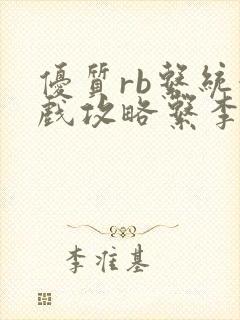 優質rb繫統
戲攻略繫李
李准基